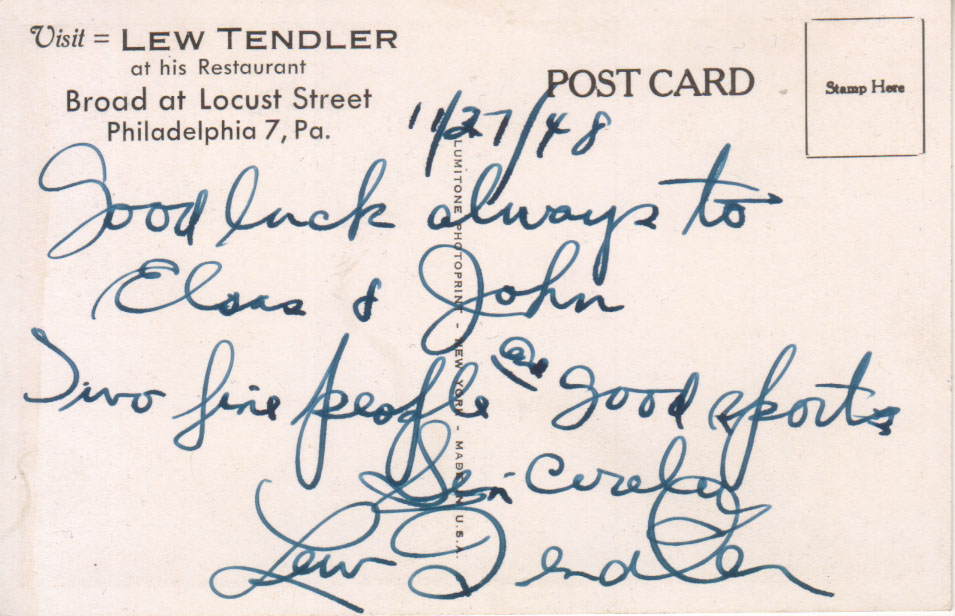 Visit = LEW TENDLER
at his Restaurant
Broad at Locust Street
Philadelphia 7, Pa.
POST CARD
Stamp Here
11/27/48
Good luck always to
Elsas & John
Two fine people and good sports
Sincerely
Lew Tendler
LUMITONE PHOTOPRINT - NEW YORK - MADE IN U.S.A.